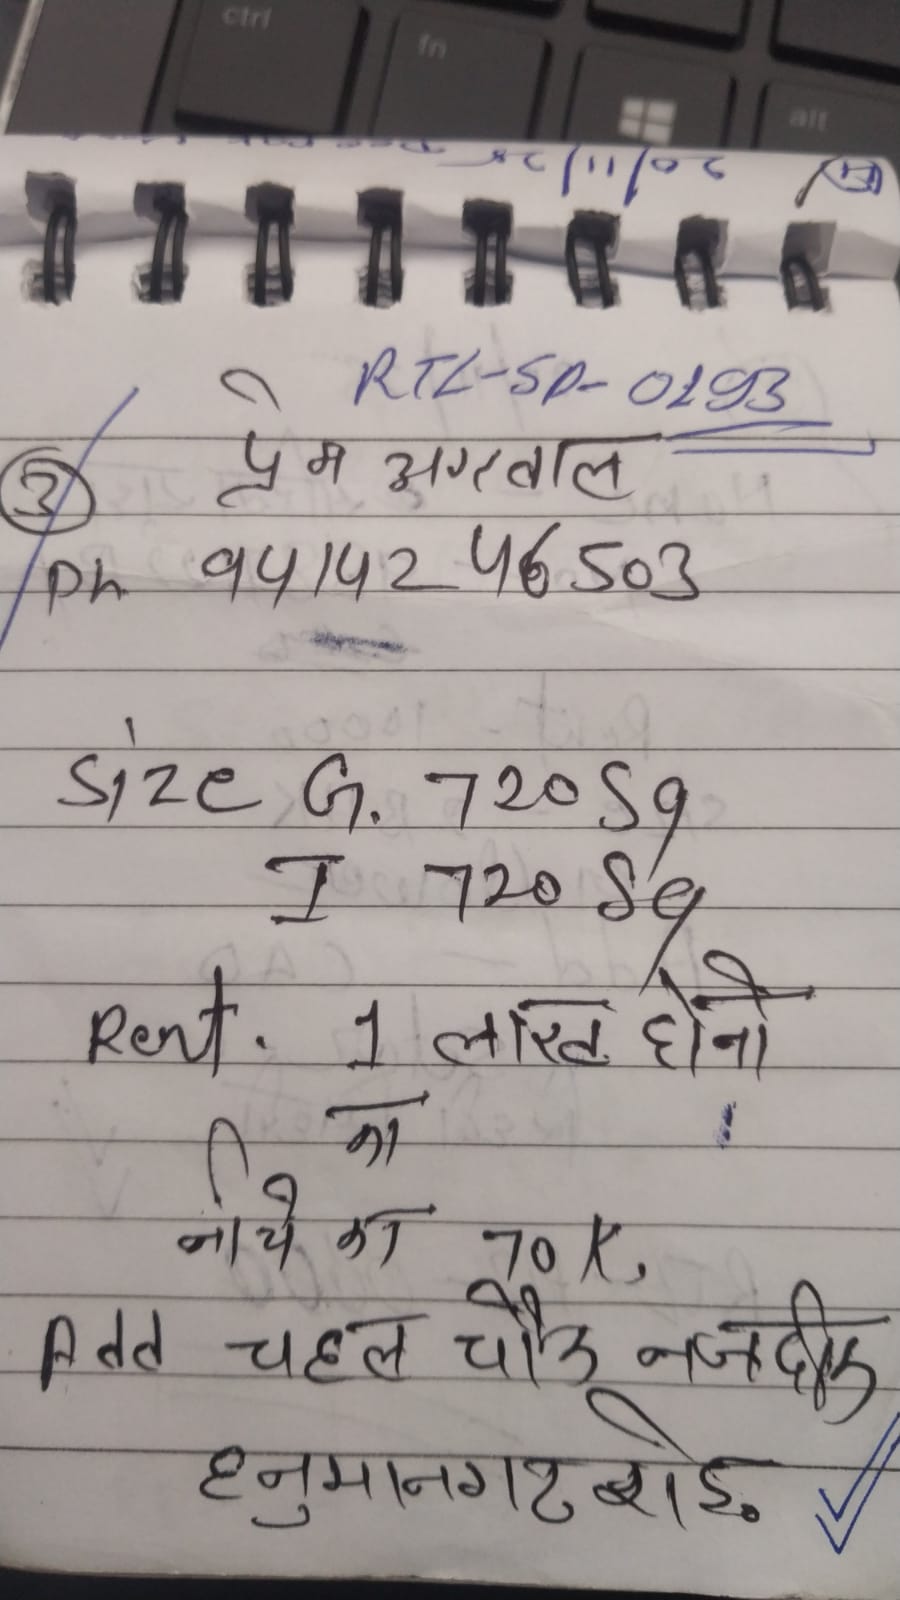 20/11/25
RTL-SP-0293
3 प्रेम अग्रवाल
Ph 9414246503
Size G. 720 Sq
I 720 Sq
Rent. 1 लाख दोनो
का
नीचे का 70 K.
Add चहल चौक नजदीक
हनुमानगढ रोड.